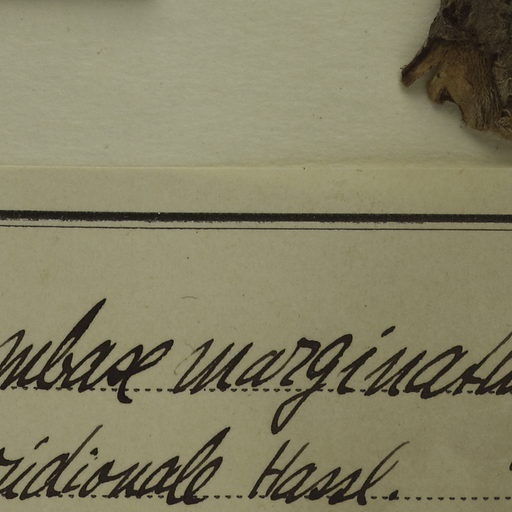 mbax marginatu
ridionale Hassl.